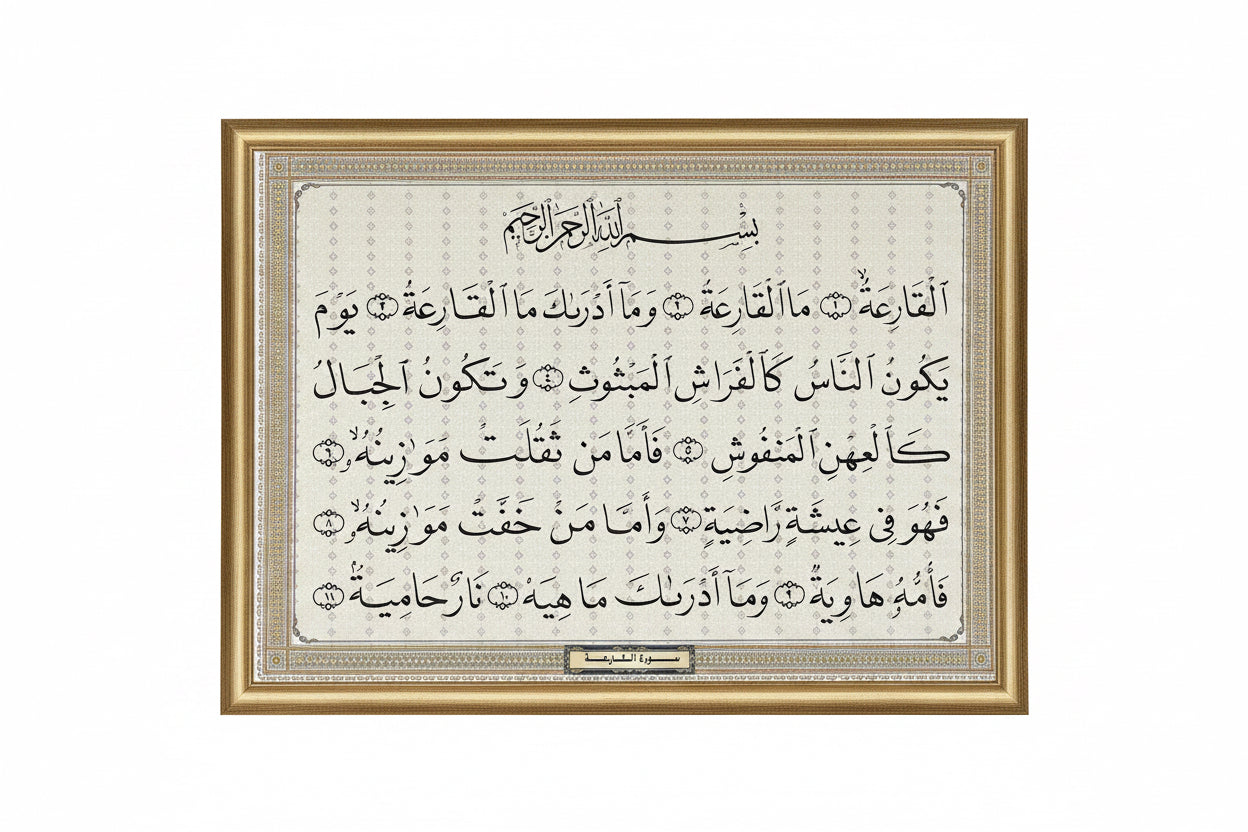 بِسْمِ ٱللَّهِ ٱلرَّحْمَٰنِ ٱلرَّحِيمِ
ٱلْقَارِعَةُ ۙ ١ مَا ٱلْقَارِعَةُ ٢ وَمَآ أَدْرَىٰكَ مَا ٱلْقَارِعَةُ ٣ يَوْمَ
يَكُونُ ٱلنَّاسُ كَٱلْفَرَاشِ ٱلْمَبْثُوثِ ٤ وَتَكُونُ ٱلْجِبَالُ
كَٱلْعِهْنِ ٱلْمَنفُوشِ ٥ فَأَمَّا مَن ثَقُلَتْ مَوَٰزِينُهُۥ ۙ ٦
فَهُوَ فِى عِيشَةٍ رَّاضِيَةٍ ٧ وَأَمَّا مَنْ خَفَّتْ مَوَٰزِينُهُۥ ۙ ٨
فَأُمُّهُۥ هَاوِيَةٌ ٩ وَمَآ أَدْرَىٰكَ مَا هِيَهْ ١٠ نَارٌ حَامِيَةٌۢ ١١
سورة القارعة